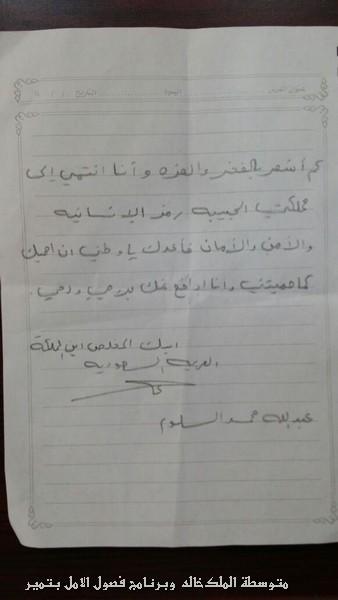 التاريخ / / ١٤
كم أشعر بالفخر والعزه وأنا انتمي إلى
مملكتي الحبيبه رمز الإنسانيه
والأمن والأمان فأعدك يا وطني ان احميك
كما حميتني وانا ادافع عنك بروحي ودمي.
ابنك المخلص ابن المملكة
العربيه السعوديه
عبدالله حمد السلوم
متوسطة الملك خالد وبرنامج فصول الامل بتمير